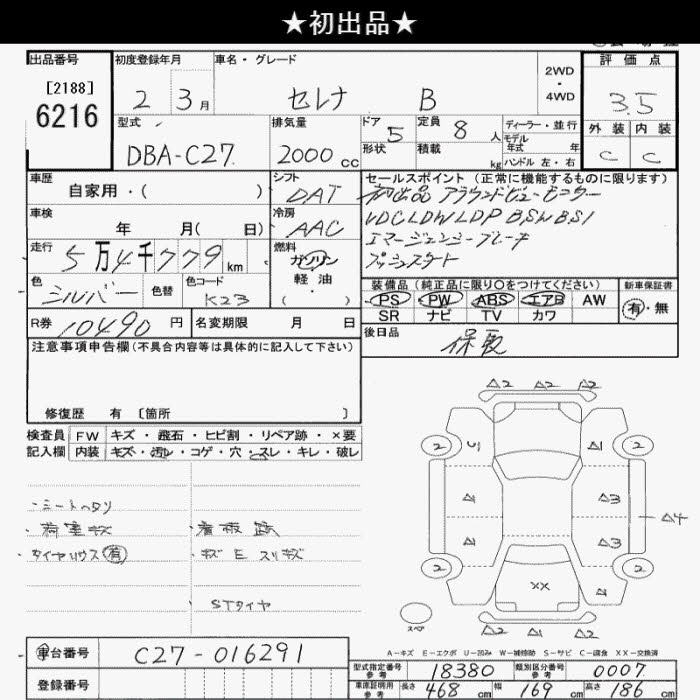 ★初出品★
出品番号 初度登録年月 車名・グレード 2WD ・ 4WD 評価点
[2188]
6216
2 3月 セレナ B 3.5
型式 排気量 ドア 5 定員 8人 ディーラー・並行 外装 内装
DBA-C27 2000cc 形状 積載 kg モデル年式 年 ハンドル 左・右 C C
車歴 自家用・( ) シフト DAT
セールスポイント (正常に機能するものに限ります)
初出品 アラウンドビューモニター
VDC LDW LDP BSW BSI
エマージェンシーブレーキ
プッシュスタート
車検 年 月( 日) 冷房 AAC
走行 5万4千779km 燃料 ガソリン 軽油 ( ・ )
色 シルバー 色替 色コード K23
装備品 (純正品に限り○をつけてください) 新車保証書
PS PW ABS エアB AW 有・無
SR ナビ TV カワ
R券 10490円 名変期限 月 日
後日品 保取
注意事項申告欄(不具合内容等は具体的に記入して下さい)
修復歴 有 〔箇所 〕
検査員 FW キズ・飛石・ヒビ割・リペア跡・×要
記入欄 内装 キズ・汚レ・コゲ・穴・スレ・キレ・破レ
・シートヘタリ
・荷室キズ ・看板跡
・タイヤハウス 有 ・キズE スリキズ
STタイヤ
A2 A2 A2
2 U1 A1 2
A1 A3
A4
A1 A3
2 XX A1 2
スペア A2 A1 A2
A-キズ E-エクボ U-凹み W-補修跡 S-サビ C-腐食 XX-交換済
車台番号 C27-016291
登録番号
型式指定番号 参考 18380 類別区分番号 参考 0007
車庫証明用 参考 長さ 468cm 幅 169cm 高さ 186cm